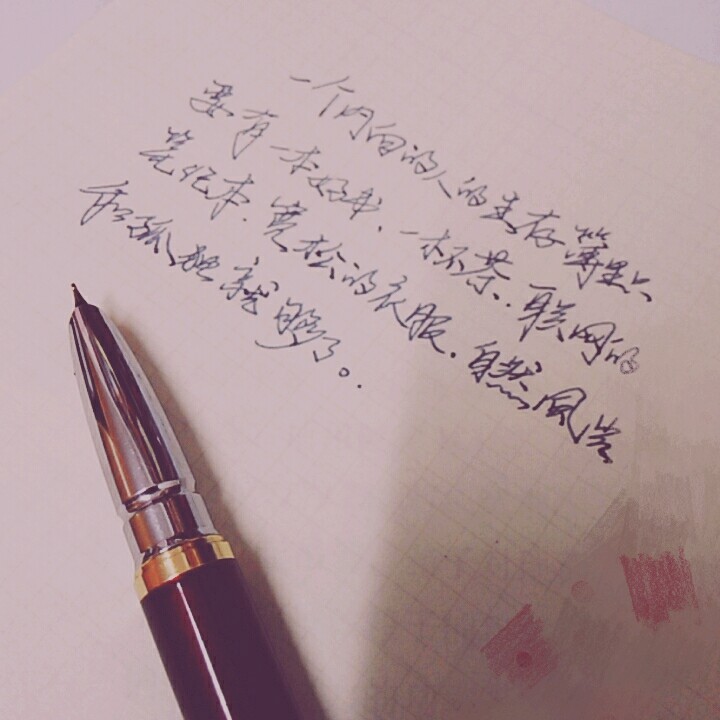 一个内向的人的生存简单,只
要有一本好书、一杯茶、联网的
笔记本、宽松的衣服、自然风光
和孤独就够了。